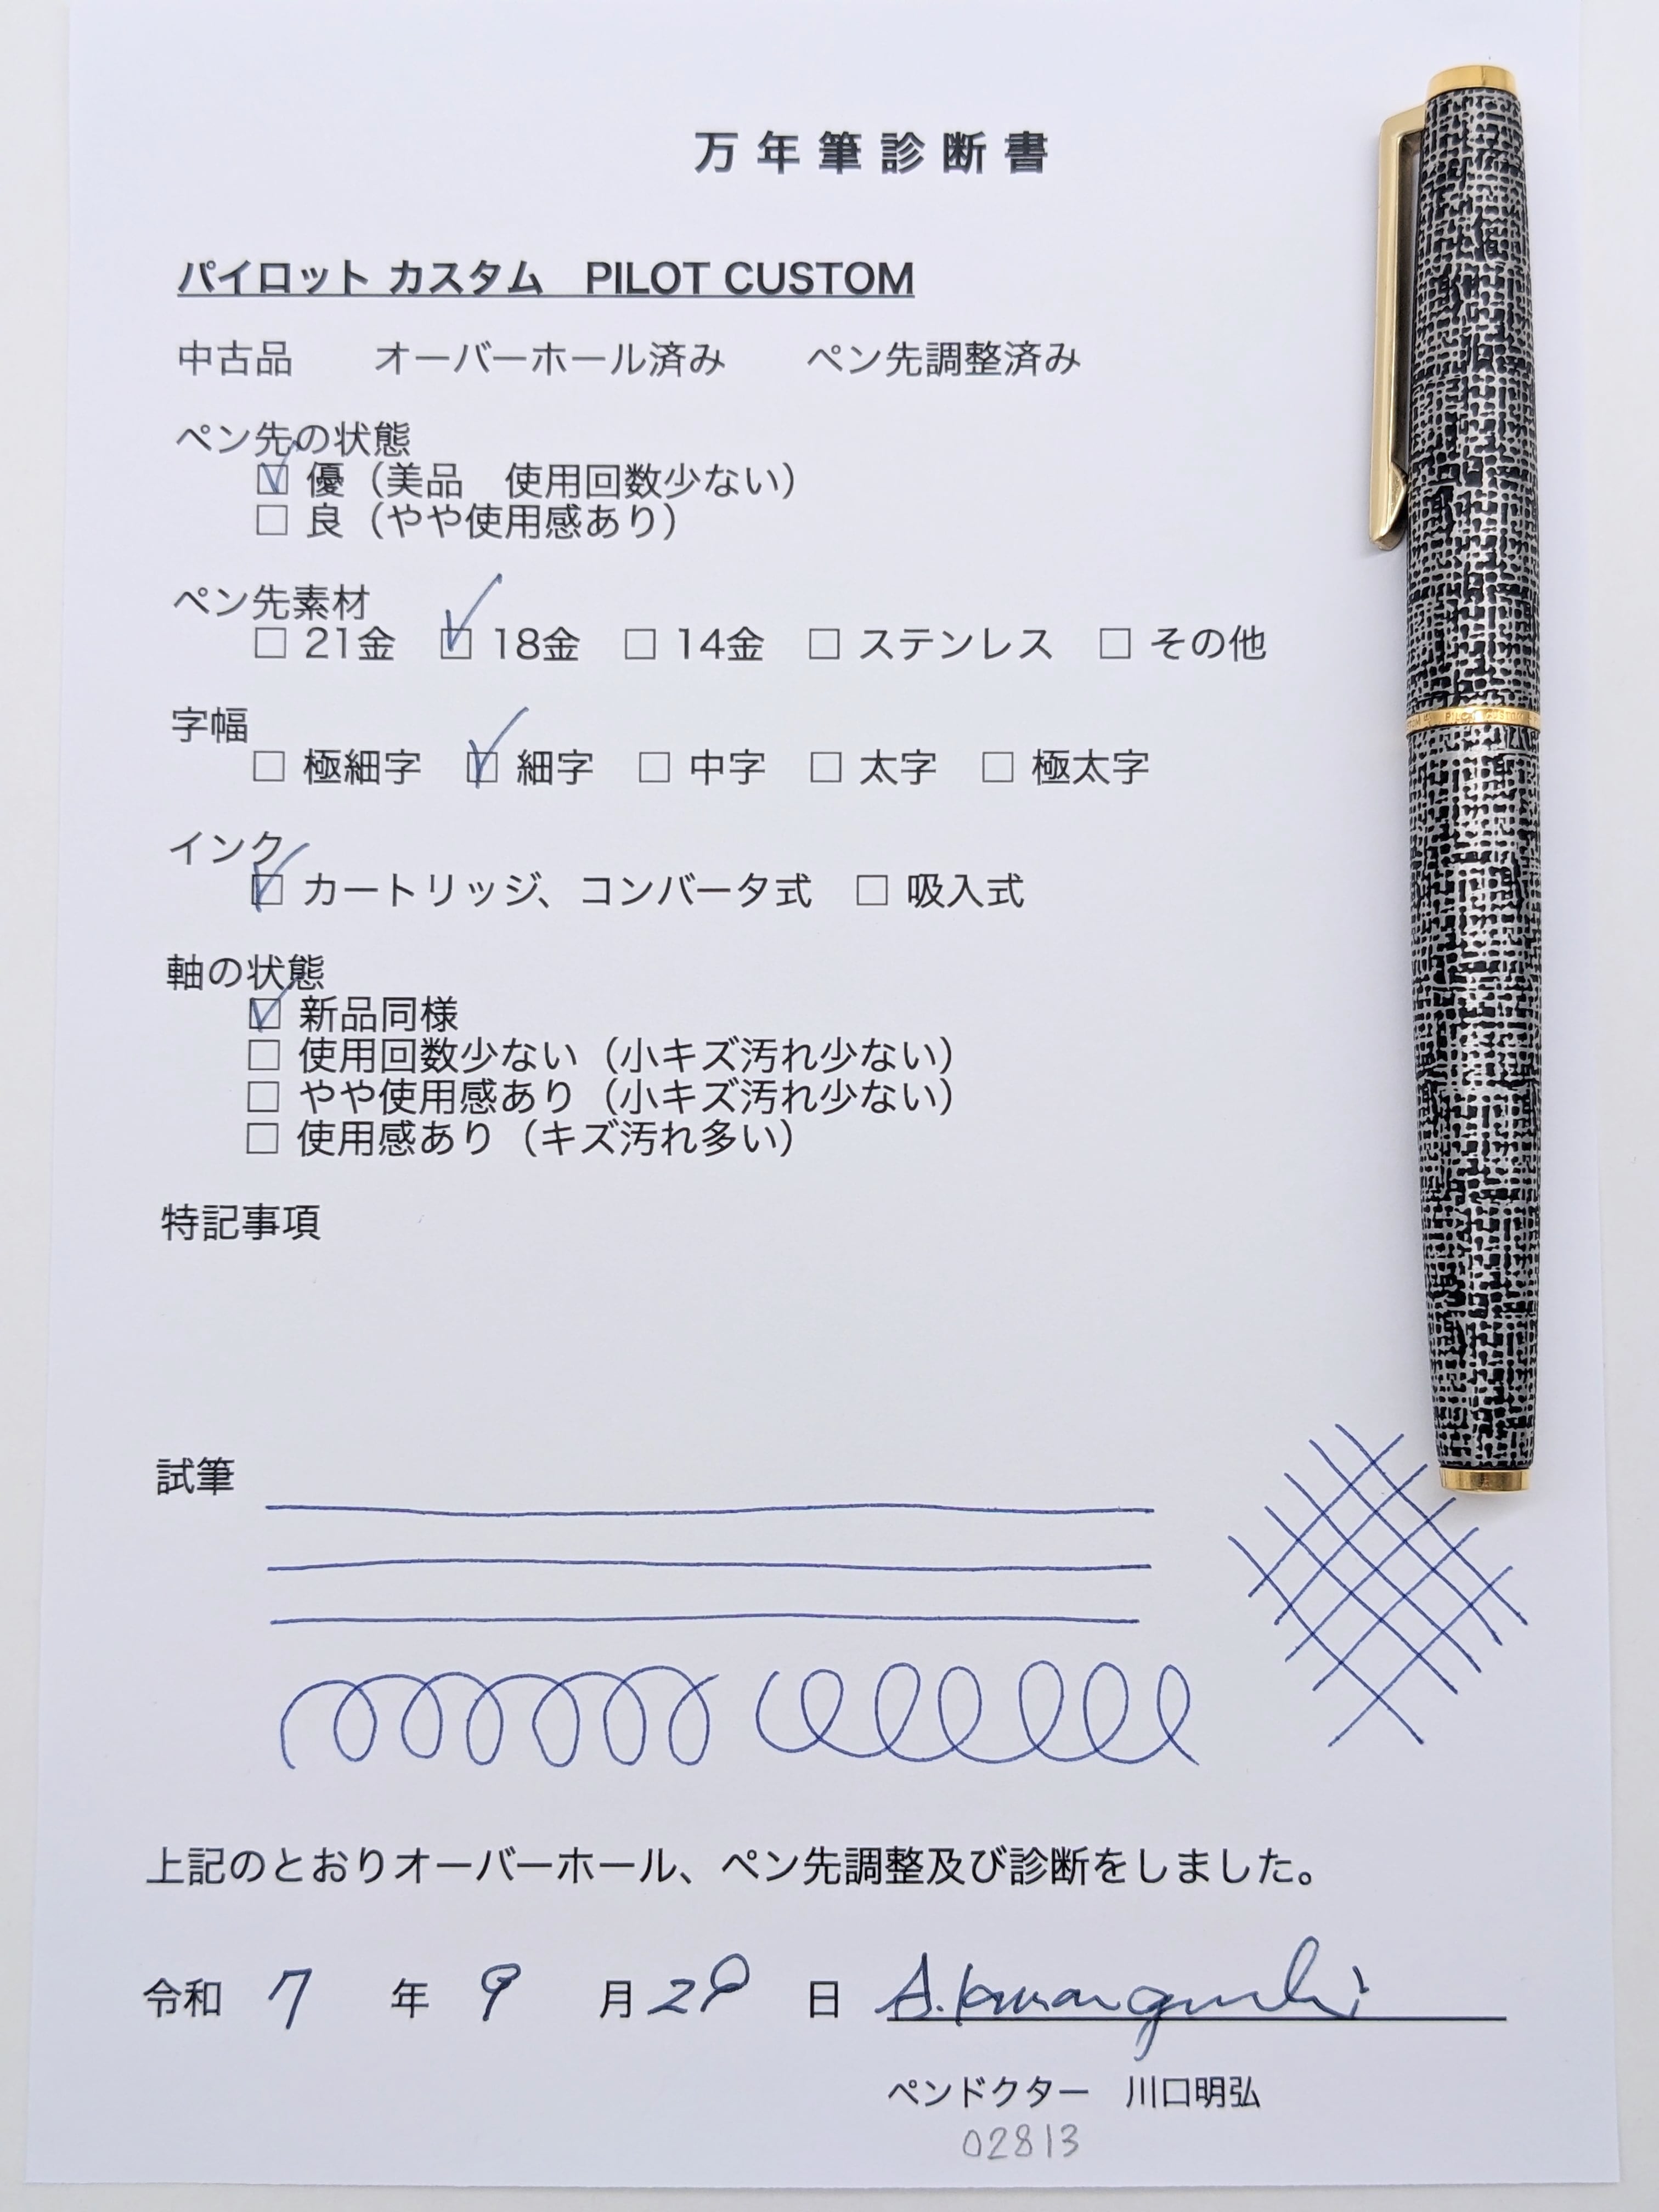 万年筆診断書
パイロット カスタム　PILOT CUSTOM
中古品　　オーバーホール済み　　ペン先調整済み
ペン先の状態
☑ 優（美品　使用回数少ない）
☐ 良（やや使用感あり）
ペン先素材
☐ 21金　☑ 18金　☐ 14金　☐ ステンレス　☐ その他
字幅
☐ 極細字　☑ 細字　☐ 中字　☐ 太字　☐ 極太字
インク
☑ カートリッジ、コンバータ式　☐ 吸入式
軸の状態
☑ 新品同様
☐ 使用回数少ない（小キズ汚れ少ない）
☐ やや使用感あり（小キズ汚れ少ない）
☐ 使用感あり（キズ汚れ多い）
特記事項
試筆
上記のとおりオーバーホール、ペン先調整及び診断をしました。
令和 7 年 9 月 29 日 A.Kawaguchi
ペンドクター　川口明弘
02813